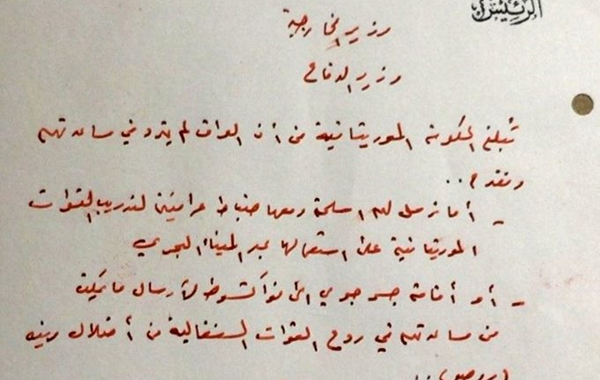 الرئيس
وزير الخارجية
وزير الدفاع
تبلغ الحكومة الموريتانية من أن العراق لم يتردد في مساندتهم
ونقدم..
- أما نرسل لهم اسلحة ومعها ضباط عراقيين لتدريب القوات
الموريتانية على استعمالها عبر الميناء البحري
- أو أقامة جسر جوي الى نواكشوط لأرسال ما يمكن
من مساندتهم في ردع القوات السنغالية من أحتلال مدينة
(روصو)